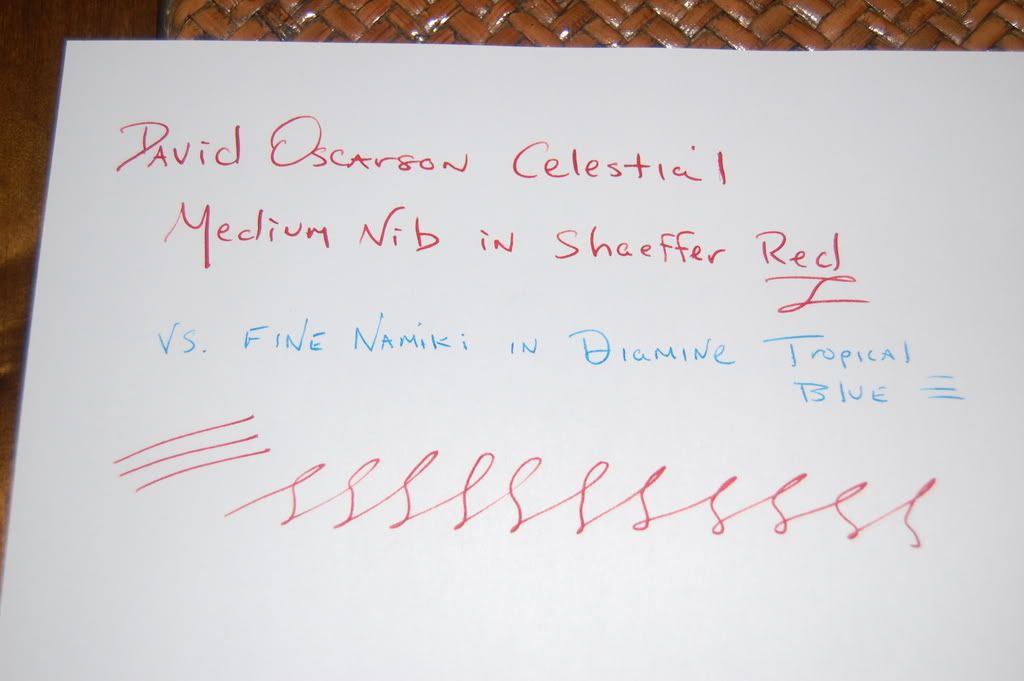 David Oscarson Celestial
Medium Nib in Shaeffer Red
VS. FINE NAMiKi IN DIAMINE TROPICAl
BLUE